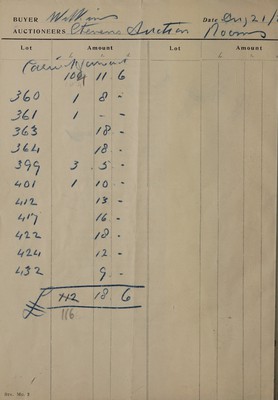 BUYER Watkins Date Aug 21/
AUCTIONEERS Stevens Auction Rooms
Lot Amount Lot Amount
104 11 6
360 1 8 -
361 1 - -
363 18 -
364 18 -
399 3 5 -
401 1 10 -
412 13 -
417 16 -
422 18 -
424 12 -
432 9 -
£ 18 6
116